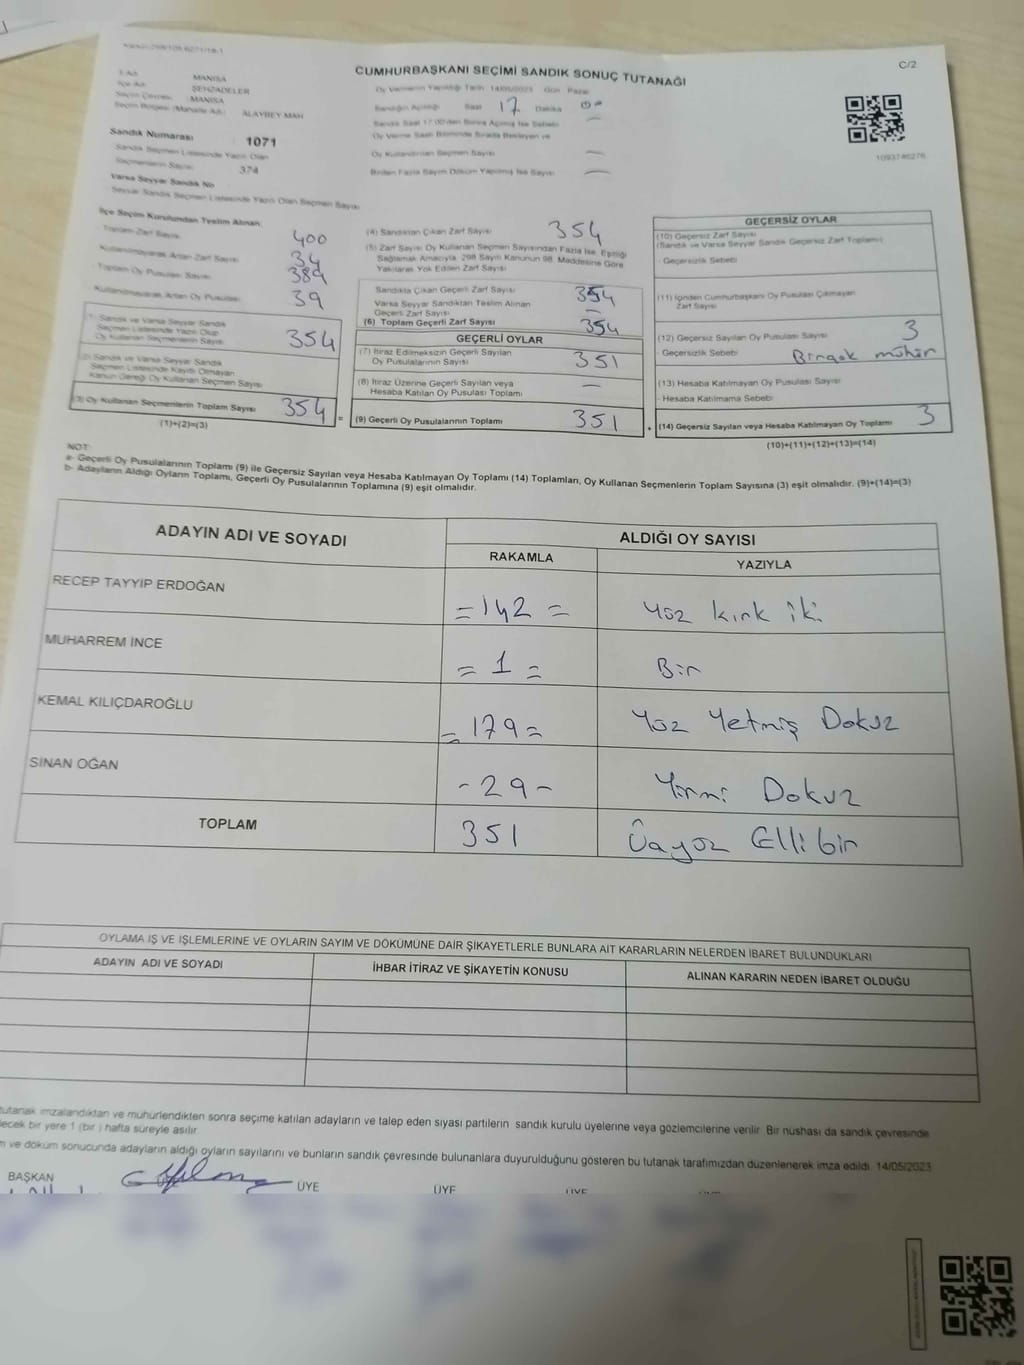 C/2
CUMHURBAŞKANI SEÇİMİ SANDIK SONUÇ TUTANAĞI
İl Adı: MANİSA
İlçe Adı: ŞEHZADELER
Seçim Çevresi: MANİSA
Seçim Bölgesi (Mahalle Adı): ALAYBEY MAH
Sandık Numarası 1071
Sandık Seçmen Listesinde Yazılı Olan
Seçmenlerin Sayısı 374
Varsa Seyyar Sandık No
Seyyar Sandık Seçmen Listesinde Yazılı Olan Seçmen Sayısı
Oy Vermenin Yapıldığı Tarih 14/05/2023 Gün Pazar
Sandığın Açıldığı Saat 17 Dakika
Sandık Saat 17:00'den Sonra Açılmış İse Sebebi
Oy Verme Saati Bitiminde Sırada Bekleyen ve
Oy Kullandırılan Seçmen Sayısı —
Birden Fazla Sayım Döküm Yapılmış İse Sayısı —
1093746276
İlçe Seçim Kurulundan Teslim Alınan
Toplam Zarf Sayısı 400
Kullanılmayarak Artan Zarf Sayısı 34
Toplam Oy Pusulası Sayısı 389
Kullanılmayarak Artan Oy Pusulası 39
(1) Sandık ve Varsa Seyyar Sandık
Seçmen Listesinde Yazılı Olup
Oy Kullanan Seçmenlerin Sayısı 354
(2) Sandık ve Varsa Seyyar Sandık
Seçmen Listesinde Kayıtlı Olmayan
Kanun Gereği Oy Kullanan Seçmen Sayısı
(3) Oy Kullanan Seçmenlerin Toplam Sayısı 354
(1)+(2)=(3)
=
(4) Sandıktan Çıkan Zarf Sayısı 354
(5) Zarf Sayısı Oy Kullanan Seçmen Sayısından Fazla İse, Eşitliği
Sağlamak Amacıyla, 298 Sayılı Kanunun 98. Maddesine Göre
Yakılarak Yok Edilen Zarf Sayısı
Sandıkta Çıkan Geçerli Zarf Sayısı 354
Varsa Seyyar Sandıktan Teslim Alınan
Geçerli Zarf Sayısı —
(6) Toplam Geçerli Zarf Sayısı 354
GEÇERLİ OYLAR
(7) İtiraz Edilmeksizin Geçerli Sayılan
Oy Pusulalarının Sayısı 351
(8) İtiraz Üzerine Geçerli Sayılan veya
Hesaba Katılan Oy Pusulası Toplamı —
(9) Geçerli Oy Pusulalarının Toplamı 351
+
GEÇERSİZ OYLAR
(10) Geçersiz Zarf Sayısı
(Sandık ve Varsa Seyyar Sandık Geçersiz Zarf Toplamı)
- Geçersizlik Sebebi
(11) İçinden Cumhurbaşkanı Oy Pusulası Çıkmayan
Zarf Sayısı
(12) Geçersiz Sayılan Oy Pusulası Sayısı 3
- Geçersizlik Sebebi Birçok mühür
(13) Hesaba Katılmayan Oy Pusulası Sayısı
- Hesaba Katılmama Sebebi
(14) Geçersiz Sayılan veya Hesaba Katılmayan Oy Toplamı 3
(10)+(11)+(12)+(13)=(14)
NOT:
a- Geçerli Oy Pusulalarının Toplamı (9) ile Geçersiz Sayılan veya Hesaba Katılmayan Oy Toplamı (14) Toplamları, Oy Kullanan Seçmenlerin Toplam Sayısına (3) eşit olmalıdır. (9)+(14)=(3)
b- Adayların Aldığı Oyların Toplamı, Geçerli Oy Pusulalarının Toplamına (9) eşit olmalıdır.
ADAYIN ADI VE SOYADI
ALDIĞI OY SAYISI
RAKAMLA YAZIYLA
RECEP TAYYIP ERDOĞAN =142= Yüz kırk iki
MUHARREM İNCE =1= Bir
KEMAL KILIÇDAROĞLU =179= Yüz Yetmiş Dokuz
SİNAN OĞAN -29- Yirmi Dokuz
TOPLAM 351 Üçyüz Elli bir
OYLAMA İŞ VE İŞLEMLERİNE VE OYLARIN SAYIM VE DÖKÜMÜNE DAİR ŞİKAYETLERLE BUNLARA AİT KARARLARIN NELERDEN İBARET BULUNDUKLARI
ADAYIN ADI VE SOYADI İHBAR İTİRAZ VE ŞİKAYETİN KONUSU ALINAN KARARIN NEDEN İBARET OLDUĞU
tutanak imzalandıktan ve mühürlendikten sonra seçime katılan adayların ve talep eden siyasi partilerin sandık kurulu üyelerine veya gözlemcilerine verilir. Bir nüshası da sandık çevresinde
lecek bir yere 1 (bir) hafta süreyle asılır.
m ve döküm sonucunda adayların aldığı oyların sayılarını ve bunların sandık çevresinde bulunanlara duyurulduğunu gösteren bu tutanak tarafımızdan düzenlenerek imza edildi. 14/05/2023
BAŞKAN ÜYE ÜYE ÜYE